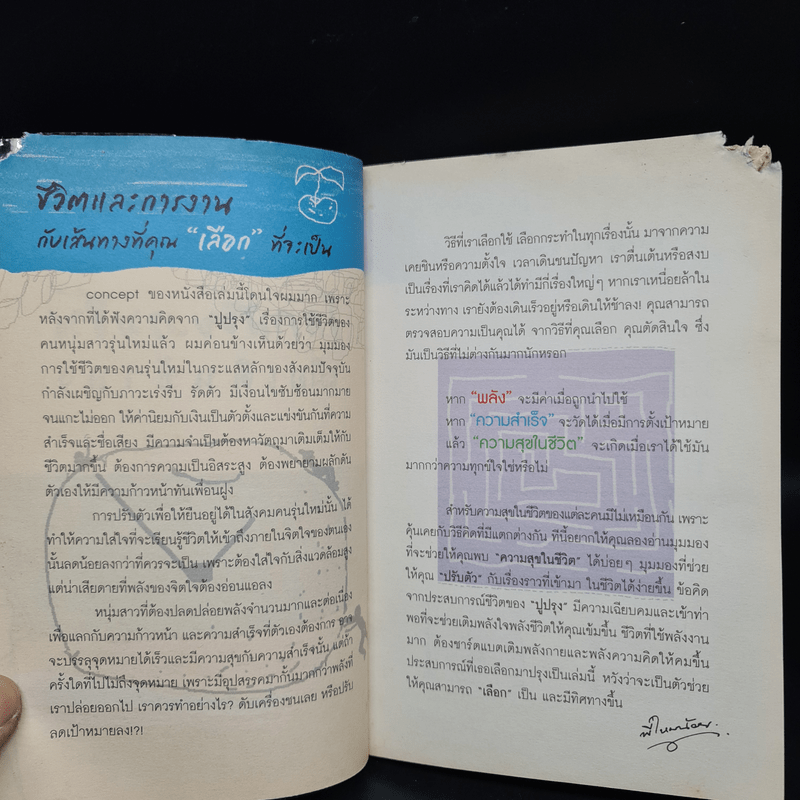 ชีวิตและการงาน
กับเส้นทางที่คุณ "เลือก" ที่จะเป็น
concept ของหนังสือเล่มนี้โดนใจผมมาก เพราะ
หลังจากที่ได้ฟังความคิดจาก "ปูปรุง" เรื่องการใช้ชีวิตของ
คนหนุ่มสาวรุ่นใหม่แล้ว ผมค่อนข้างเห็นด้วยว่า มุมมอง
การใช้ชีวิตของคนรุ่นใหม่ในกระแสหลักของสังคมปัจจุบัน
กำลังเผชิญกับภาวะเร่งรีบ รัดตัว มีเงื่อนไขซับซ้อนมากมาย
จนแกะไม่ออก ให้ค่านิยมกับเงินเป็นตัวตั้งและแข่งขันกันที่ความ
สำเร็จและชื่อเสียง มีความจำเป็นต้องหาวัตถุมาเติมเต็มให้กับ
ชีวิตมากขึ้น ต้องการความเป็นอิสระสูง ต้องพยายามผลักดัน
ตัวเองให้มีความก้าวหน้าทันเพื่อนฝูง
การปรับตัวเพื่อให้ยืนอยู่ได้ในสังคมคนรุ่นใหม่นั้น ได้
ทำให้ความใส่ใจที่จะเรียนรู้ชีวิตให้เข้าถึงภายในจิตใจของตนเอง
นั้นลดน้อยลงกว่าที่ควรจะเป็น เพราะต้องใส่ใจกับสิ่งแวดล้อมสูง
แต่น่าเสียดายที่พลังของจิตใจต้องอ่อนแอลง
หนุ่มสาวที่ต้องปลดปล่อยพลังจำนวนมากและต่อเนื่อง
เพื่อแลกกับความก้าวหน้า และความสำเร็จที่ตัวเองต้องการ อาจ
จะบรรลุจุดหมายได้เร็วและมีความสุขกับความสำเร็จนั้น แต่ถ้า
ครั้งใดที่ไปไม่ถึงจุดหมาย เพราะมีอุปสรรคมากั้นมากกว่าพลังที่
เราปล่อยออกไป เราควรทำอย่างไร? ดับเครื่องชนเลย หรือปรับ
ลดเป้าหมายลง!?!
วิธีที่เราเลือกใช้ เลือกกระทำในทุกเรื่องนั้น มาจากความ
เคยชินหรือความตั้งใจ เวลาเดินชนปัญหา เราตื่นเต้นหรือสงบ
เป็นเรื่องที่เราคิดได้แล้วได้ทำมีกี่เรื่องใหญ่ๆ หากเราเหนื่อยล้าใน
ระหว่างทาง เรายังต้องเดินเร็วอยู่หรือเดินให้ช้าลง! คุณสามารถ
ตรวจสอบความเป็นคุณได้ จากวิธีที่คุณเลือก คุณตัดสินใจ ซึ่ง
มันเป็นวิธีที่ไม่ต่างกันมากนักหรอก
หาก "พลัง" จะมีค่าเมื่อถูกนำไปใช้
หาก "ความสำเร็จ" จะวัดได้เมื่อมีการตั้งเป้าหมาย
แล้ว "ความสุขในชีวิต" จะเกิดเมื่อเราได้ใช้มัน
มากกว่าความทุกข์ใจใช่หรือไม่
สำหรับความสุขในชีวิตของแต่ละคนมีไม่เหมือนกัน เพราะ
คุ้นเคยกับวิธีคิดที่มีแตกต่างกัน ทีนี้อยากให้คุณลองอ่านมุมมอง
ที่จะช่วยให้คุณพบ "ความสุขในชีวิต" ได้บ่อยๆ มุมมองที่จะช่วย
ให้คุณ "ปรับตัว" กับเรื่องราวที่เข้ามา ในชีวิตได้ง่ายขึ้น ข้อคิด
จากประสบการณ์ชีวิตของ "ปูปรุง" มีความเฉียบคมและเข้าท่า
พอที่จะช่วยเติมพลังใจพลังชีวิตให้คุณเข้มขึ้น ชีวิตที่ใช้พลังงาน
มาก ต้องชาร์ตแบตเติมพลังกายและพลังความคิดให้คมขึ้น
ประสบการณ์ที่เธอเลือกมาปรุงเป็นเล่มนี้ หวังว่าจะเป็นตัวช่วย
ให้คุณสามารถ "เลือก" เป็น และมีทิศทางขึ้น